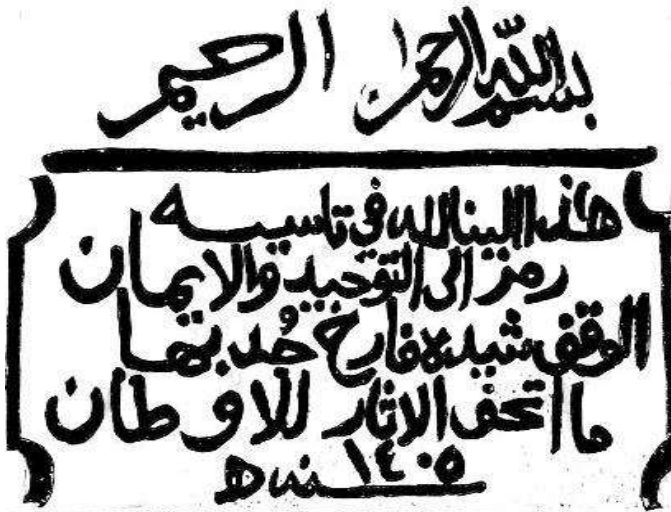 بسم الله الرحمن الرحيم
هاذا البنا لله في تاسيسه
رمز الى التوحيد والايمان
الوقف شيده فارخ جُد بتها
ما اتحف الاثار للاوطان
سنه ١٤٠٥ هـ